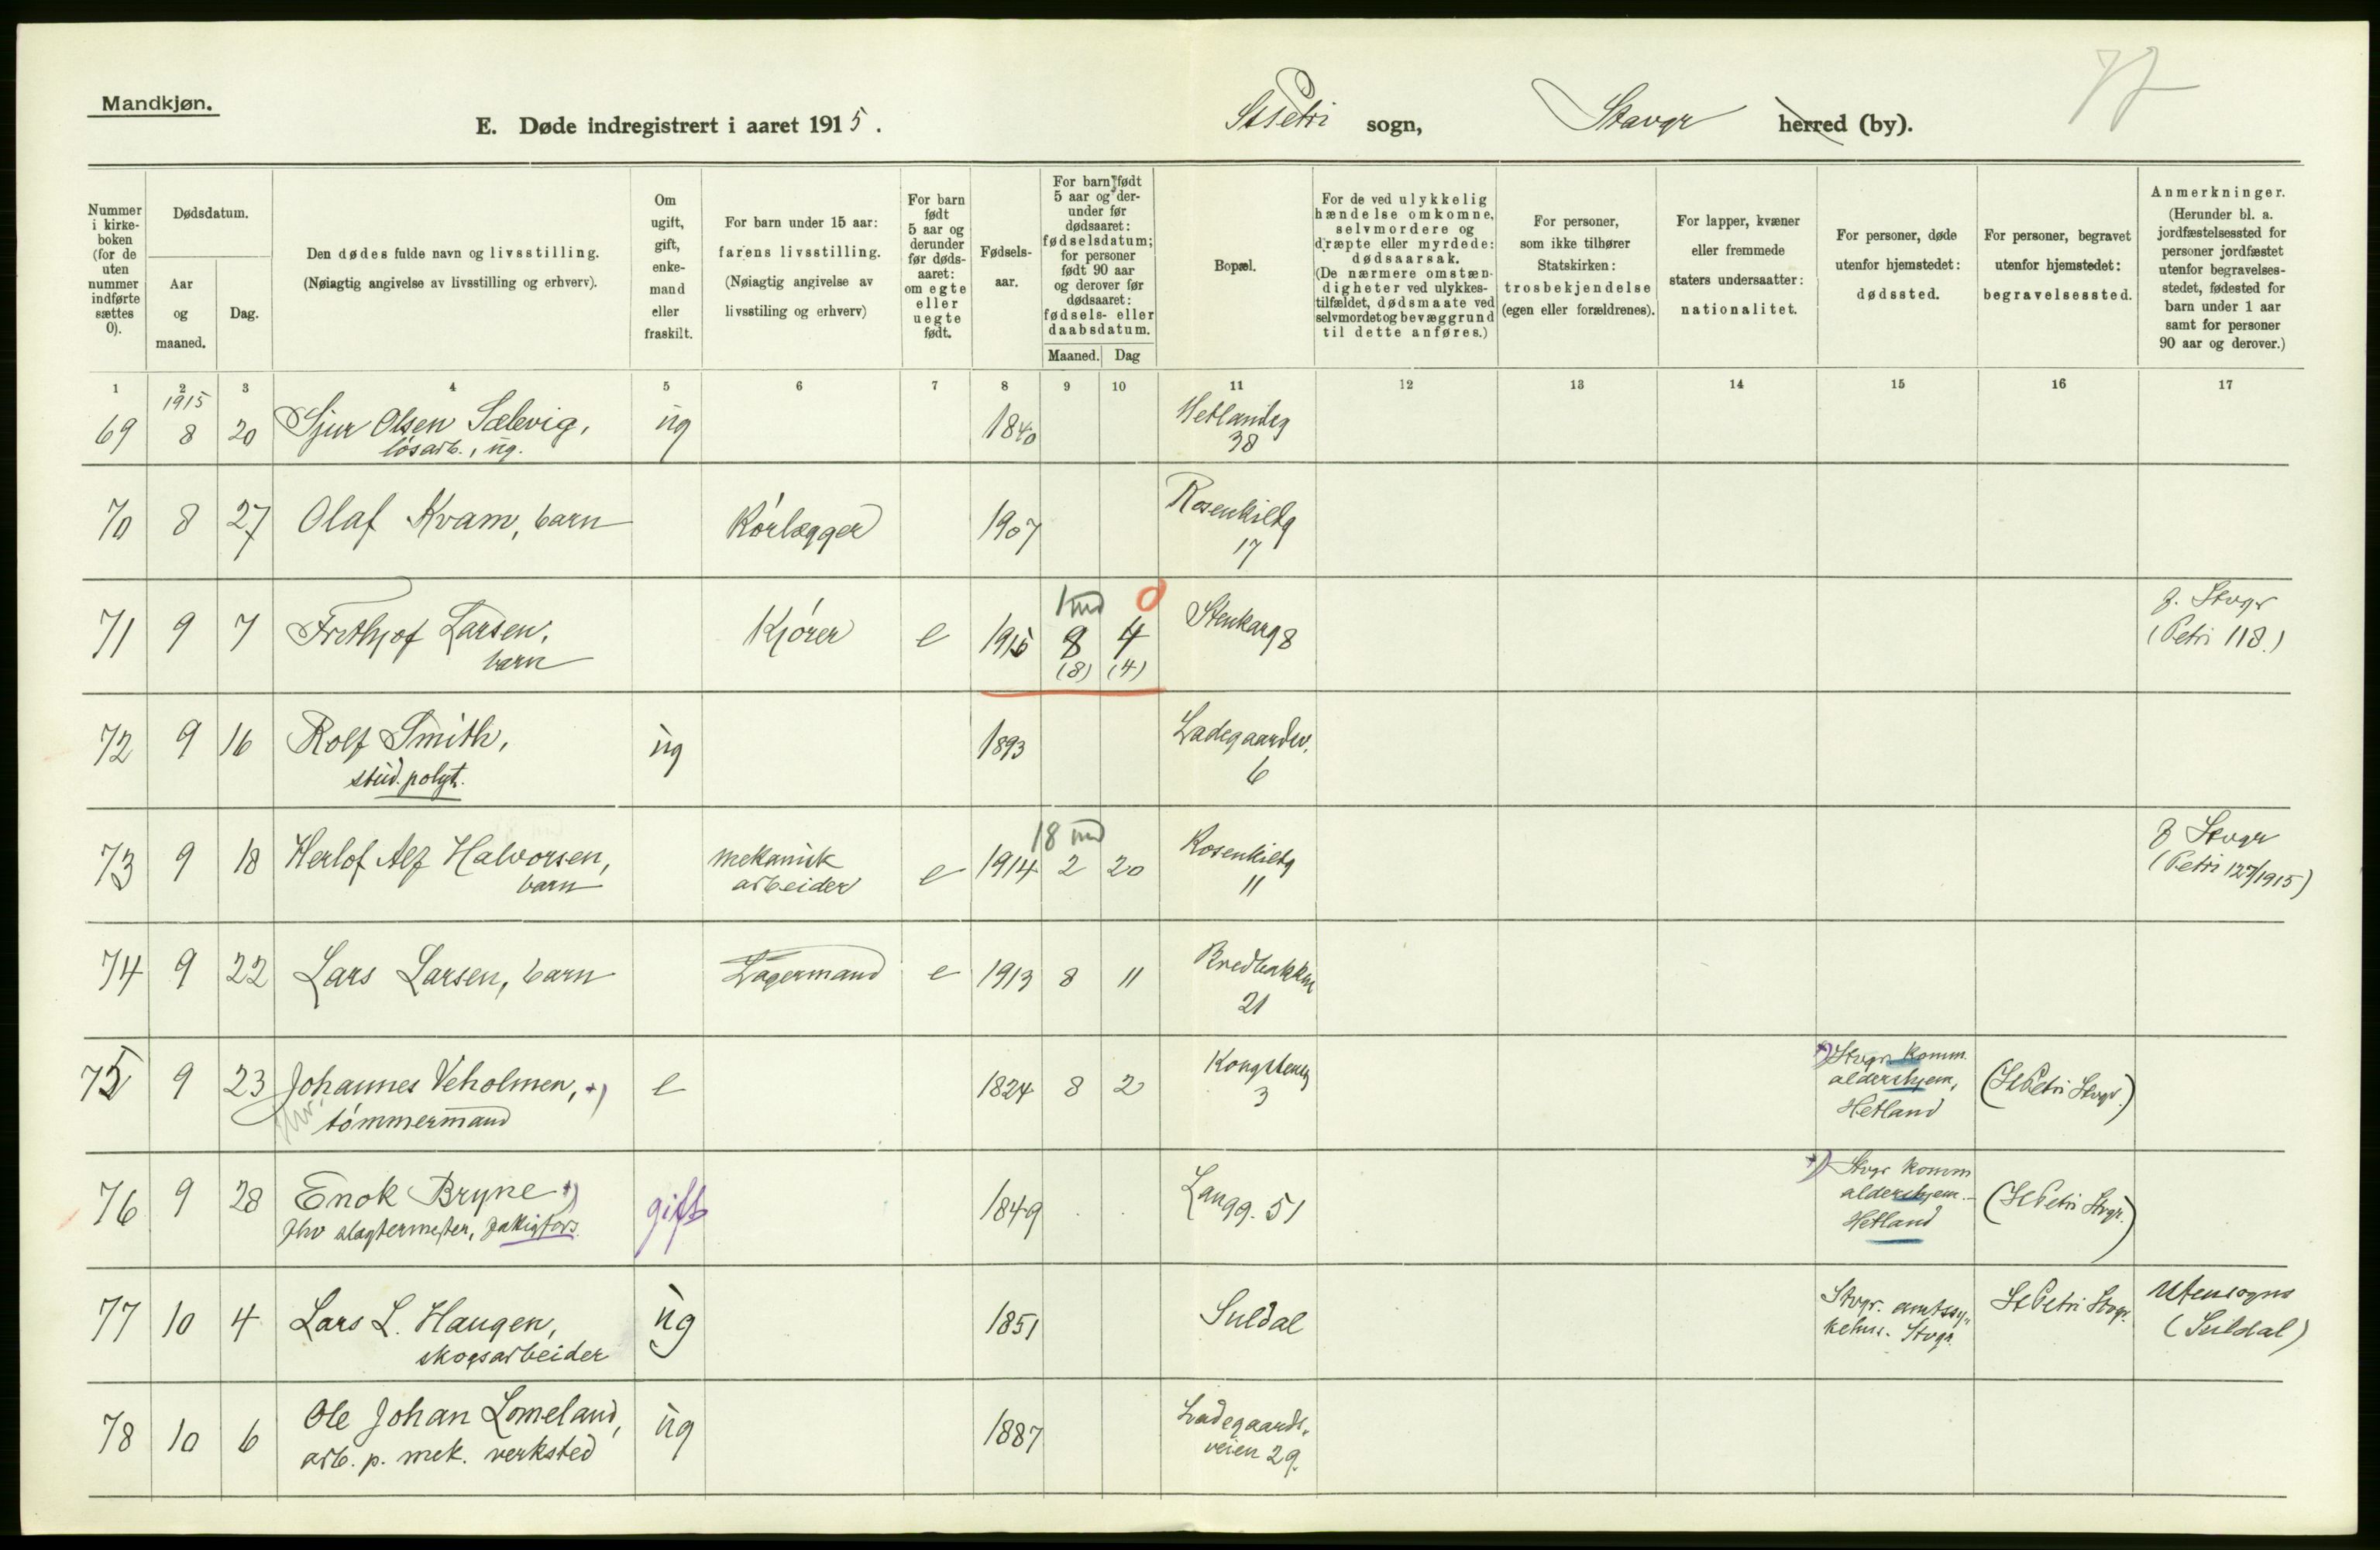 Mandkjøn.
E. Døde indregistrert i aaret 1915.
St Petri sogn, Stavgr herred (by).
72
Nummer i kirke-boken (for de uten nummer indførte sættes 0).
Dødsdatum.
Aar og maaned.
Dag.
Den dødes fulde navn og livsstilling.
(Nøiagtig angivelse av livsstilling og erhverv).
Om ugift, gift, enke-mand eller fraskilt.
For barn under 15 aar:
farens livsstilling.
(Nøiagtig angivelse av livsstiling og erhverv)
For barn født 5 aar og derunder før døds-aaret: om egte eller uegte født.
Fødsels-aar.
For barn født 5 aar og der-under før dødsaaret: fødselsdatum; for personer født 90 aar og derover før dødsaaret: fødsels- eller daabsdatum.
Maaned. Dag
Bopæl.
For de ved ulykkelig hændelse omkomne, selvmordere og dræpte eller myrdede: dødsaarsak.
(De nærmere omstæn-digheter ved ulykkes-tilfældet, dødsmaate ved selvmordet og bevæggrund til dette anføres.)
For personer, som ikke tilhører Statskirken: trosbekjendelse (egen eller forældrenes).
For lapper, kvæner eller fremmede staters undersaatter: nationalitet.
For personer, døde utenfor hjemstedet: dødssted.
For personer, begravet utenfor hjemstedet: begravelsessted.
Anmerkninger.
(Herunder bl. a. jordfæstelsessted for personer jordfæstet utenfor begravelses-stedet, fødested for barn under 1 aar samt for personer 90 aar og derover.)
1 2 3 4 5 6 7 8 9 10 11 12 13 14 15 16 17
1915
69 8 20 Sjur Olsen Sælevig, ug 1840 Hetlandsg
løsarb., ug. 38
70 8 27 Olaf Kvam, barn Rørlægger 1907 Rosenkildg
17
1 md 0
71 9 7 Frithjof Larsen, Kjører e 1915 8 4 Stenkarg 8 f. Stvgr
barn (8) (4) (Petri 118.)
72 9 16 Rolf Smith, ug 1893 Ladegaardsv.
stud. polyt. 6
18 md
73 9 18 Herlof Alf Halvorsen, mekanisk e 1914 2 20 Rosenkildg f Stvgr
barn arbeider 11 (Petri 127/1915)
74 9 22 Lars Larsen, barn Lagermand e 1913 8 11 Bredbakken
21
75 9 23 Johannes Veholmen, +) e 1824 8 2 Kongsteng +) Stvgr. komm. (St Petri Stvgr.)
fhv. tømmermand 3 aldershjem,
Hetland
76 9 28 Enok Bryne +) gift 1849 Langg. 51 +) Stvgr komm (St Petri Stvgr.)
fhv slagtermester, fattigfors. aldershjem.
Hetland
77 10 4 Lars L. Haugen, ug 1851 Suldal Stvgr. amtssy- St Petri Stvgr. Utensogns
skogsarbeider kehus. Stvgr. (Suldal)
78 10 6 Ole Johan Lomeland, ug 1887 Ladegaards-
arb. p. mek. verksted veien 29.